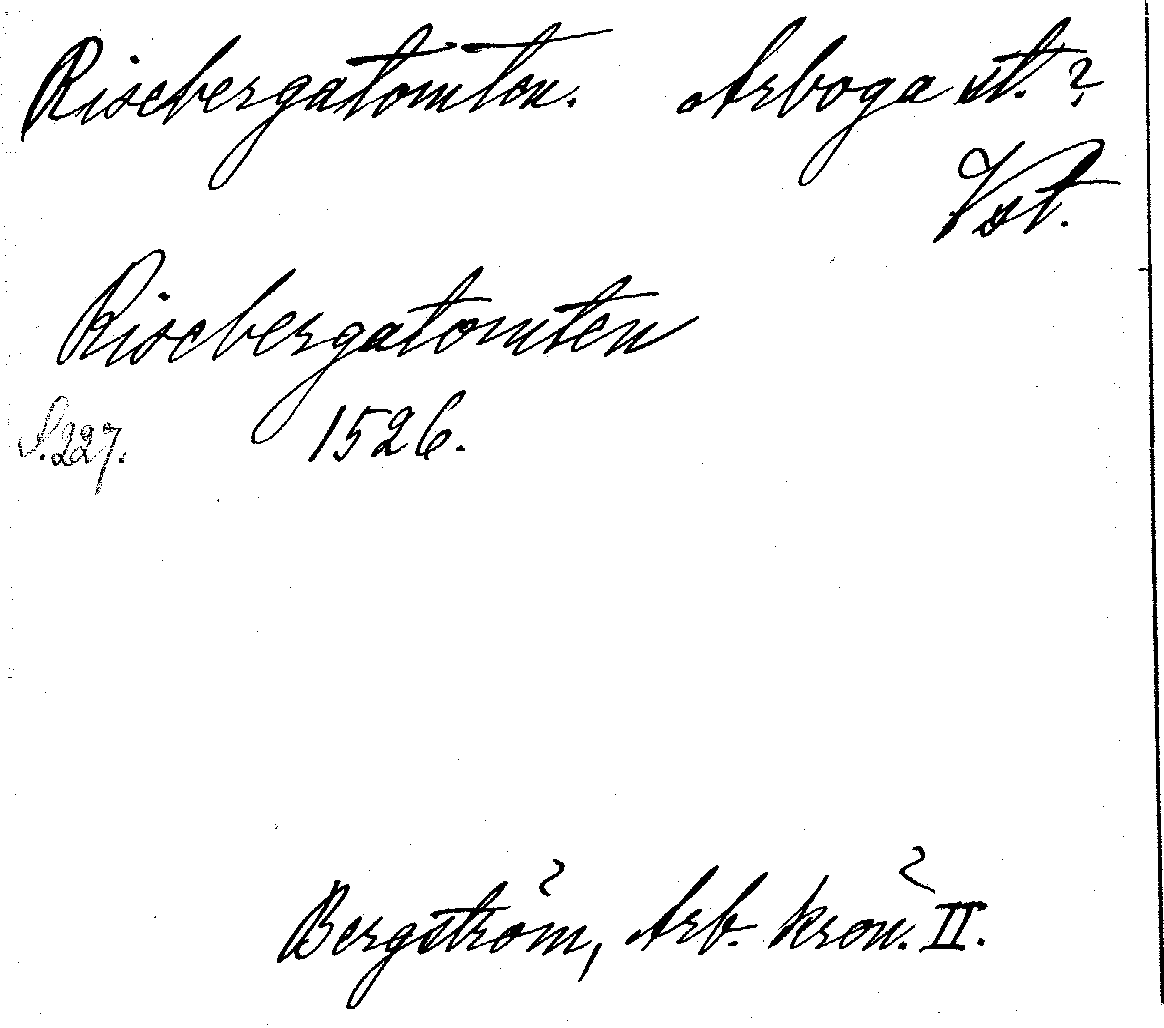 Risebergatomten. Arboga st.?
Vst.
Risebergatomten
S. 227. 1526.
Bergström, Arb. krön. II.